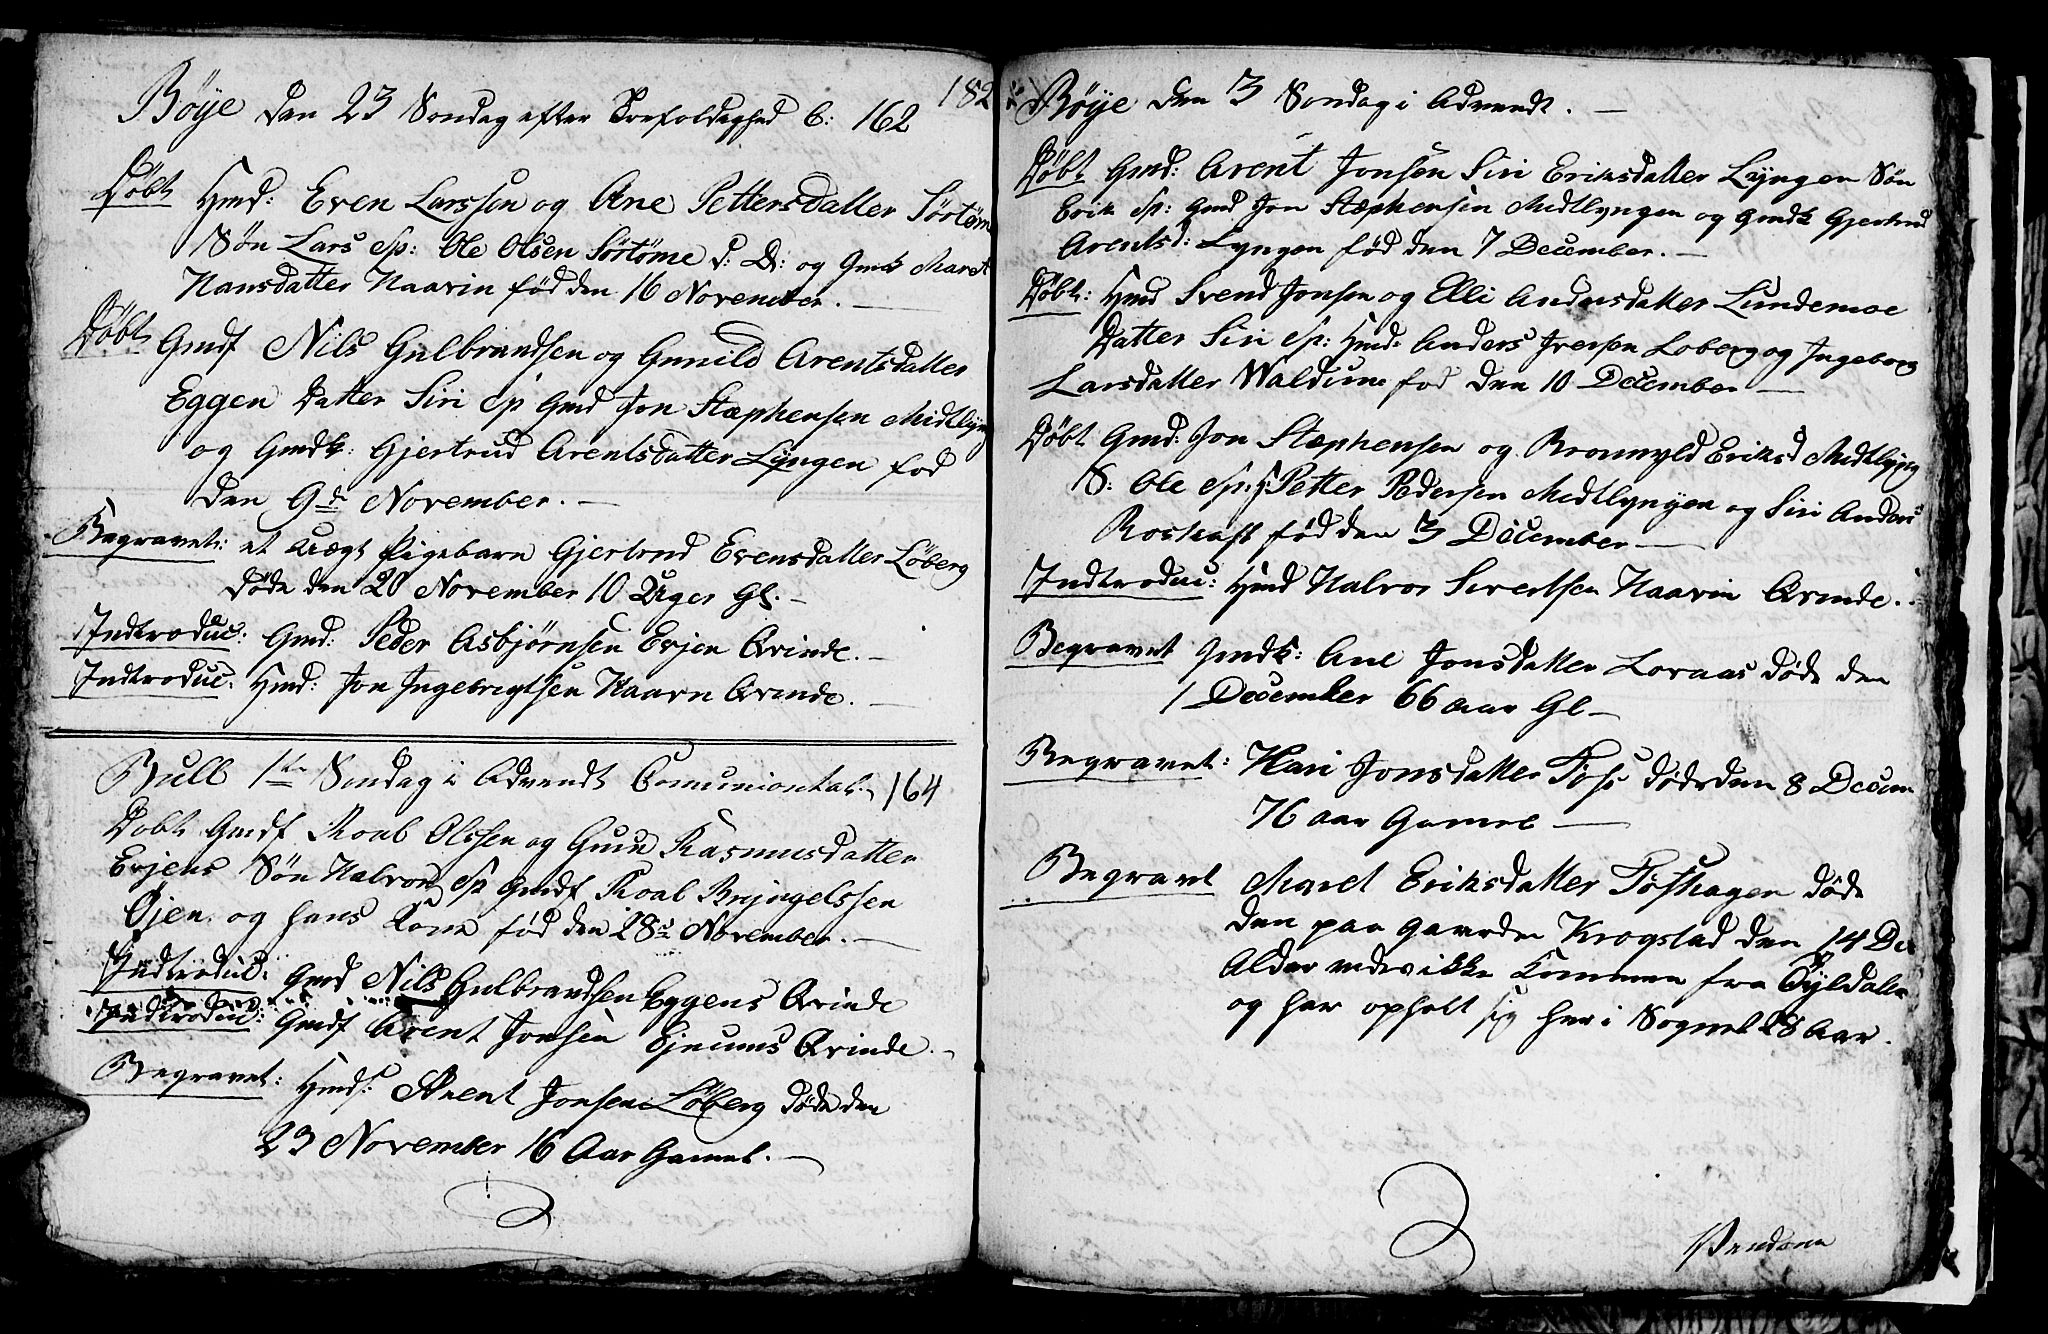 182
Bøye den 23 Søndag efter Trefoldighed C: 162
Døbt Hmd: Even Larssen og Ane Pettersdatter Sørtøme
Søn Lars Sp: Ole Olsen Sørtøme S: D: og Gmk Maret
Hansdatter Haavin fød den 16 November. —
Døbt Gmdf Nils Gulbrandsen og Gunild Arentsdatter
Eggen Datter Siri Sp Gmd Jon Stæphensen Midtlyng
og Gmdk: Gjertrud Arentsdatter Lyngen fød
den 9de November. —
Begravet: et Pigebarn Gjertrud Evensdatter Løberg
døde den 20 November 10 Uger Gl. —
Indtroduc: Gmd: Peder Asbjørnsen Evjen Qvinde. —
Indtroduc: Hmd: Jon Ingebrigtsen Haavn Qvinde. —
Bull 1te Søndag i Advendt Comuniontal. 164
Døbt Gmdf Roal Olssen og Guru Rasmusdatter
Evjens Søn Halvor Sp Gmdf Roal Bryngelssen
Øjen og hans Kone fød den 28de November. —
Indtroduc: Gmd Nils Gulbrandsen Eggens Qvinde
Indtroduc: Gmdf Arent Jonsen Qvinde. —
Begravet: Hmds: Arent Jonsen Løberg døde den
23 November 16 Aar Gamel. —
Bøye den 3 Søndag i Advendt. —
Døbt Gmd: Arent Jonsen Siri Eriksdatter Lyngen Søn
Erik Sp: Gmd Jon Stæphensen Midtlyngen og Gmdk Gjertrud
Arentsd: Lyngen fød den 7 December. —
Døbt: Hmd Svend Jonsen og Elli Andersdatter Lundemoe
Datter Siri Sp: Hmd: Anders Iversen Loberg og Ingeborg
Larsdatter Waldum fød den 10 December —
Døbt Gmd: Jon Stæphensen og Eriksd Midtlyng
S: Ole Sp: Petter Pedersen Midtlyngen og Siri Anders
Roskaft fød den 3 December —
Indtroduc: Hmd Halvor Sivertsen Haavin Qvinde.
Begravet Gmdk: Ane Jonsdatter Loraas døde den
1 December 66 aar Gl —
Begravet: Kari Jonsdatter døde den 8 Decem
76 aar Gamel —
Begravet Maret Eriksdatter døde
den paa Gaarden Krogstad den 14 De
Alder vides ikke Kommen fra Gyldalen
og har opholt sig her i Sognet 28 Aar.